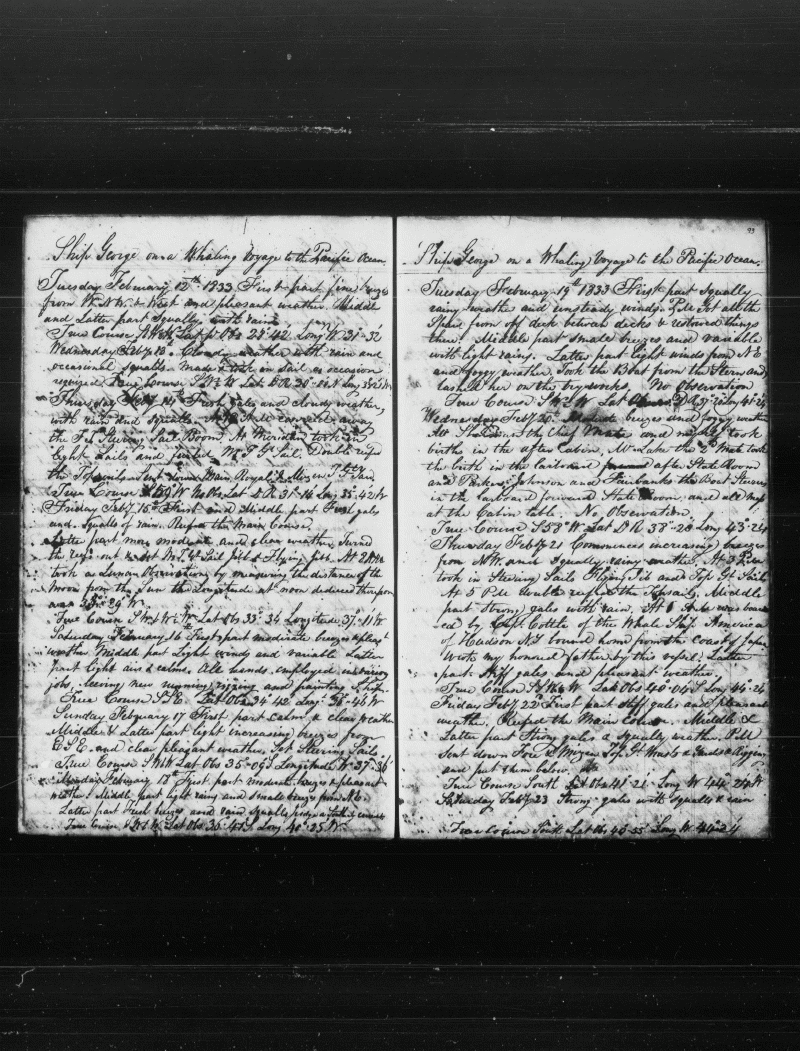 Ship George on a Whaling Voyage to the Pacific Ocean.
Tuesday February 12th 1833 First part fine breezes
from W.N.W. & West and pleasant weather Middle
and Latter part Squally with rain
True Course Lat pr Obs 27°42 Long W 31°32
Wednesday Feby 13. Cloudy weather with rain and
occasional Squalls. made & took in Sail as occasion
required True Course Lat D.R. Long
Thursday Feby 14 Fresh gales and cloudy weather,
with rain and squalls. carried away
the Steering Sail Boom. At Meridian took in
light Sails and furled M. T. Gt Sail. Double reefed
the Topsails. Sent down Main Royal & Mizen T. Gt Yard
True Course Lat D.R. 31°14 Long 35°42 W
Friday Feby 15th First and Middle part Fresh gales
and Squalls of rain. Reefed the Main Course.
Latter part more moderate and clear weather, turned
the reefs out & set M. T. Gt Sail Jibb & Flying jibb. At 2
took a Lunar Observation by measuring the distance of the
Moon from the Sun the Longitude at noon deduced therefrom
was W.
True Course S.W. Lat Obs 33°34 Longitude 37°11 W
Saturday February 16 First part moderate breezes & pleasant
weather Middle part Light winds and variable Latter
part light airs & calms. All hands employed in various
jobs. reeving new running rigging and painting Ship.
True Course S.E. Lat Obs 34°42 Long 36°46 W
Sunday February 17 First part calm & clear weather
Middle & Latter part light increasing breezes from
E.S.E. and clear pleasant weather. Set Steering Sails
True Course Lat Obs 35°09 S Longitude W 37°36
Monday February 18th First part moderate breezes & pleasant
weather. Middle part light rain and small breezes from N.E.
Latter part Fresh breezes and rain squalls
True Course Lat Obs Long 40°25 W
93
Ship George on a Whaling Voyage to the Pacific Ocean.
Tuesday February 19th 1833 First part Squally
rainy weather and unsteady winds. P.M. Got all the
Spars from off deck between decks & restowed things
there. Middle part small breezes and variable
with light rains. Latter part light winds from N E
and foggy weather. Took the Boat from the Stern and
lashed her on the tryworks. No Observation
True Course Lat D R Long
Wednesday Feby 20th breezes and foggy weather
the Chief Mate and myself took
births in the after Cabin, Mr Lake the 2d Mate took
the birth in the Larboard after State Room
and Parker, Johnson and Fairbanks the Boat Steerers
in the Larboard forward State Room. and all
at the Cabin table. No Observation.
True Course S 58° W Lat D R 38°28 Long 43°24
Thursday Feby 21 Commences increasing breezes
from N.W. and Squally rainy weather. At 3 P.M.
took in Steering Sails Flying Jib and Top Gt Sails
At 5 P.M. double reefed the Topsails. Middle
part Strong gales with rain. At was
by Capt. Cottle of the Whale Ship America
of Hudson N.Y. bound home from the coast of
Wrote my honored father by this vessel. Latter
part Stiff gales and pleasant weather
True Course Lat Obs 40°04 S Long 44°24
Friday Feby 22 First part stiff gales and pleasant
weather. Reefed the Main Course. Middle &
Latter part Strong gales & Squally weather. P.M.
Sent down Fore & Mizen T. Gt Masts & Yards & Rigging
and put them below.
True Course South Lat Obs 41°21 Long W 44°24 W
Saturday Feby 23 Strong gales with squalls & rain
True Course South Lat Obs Long W